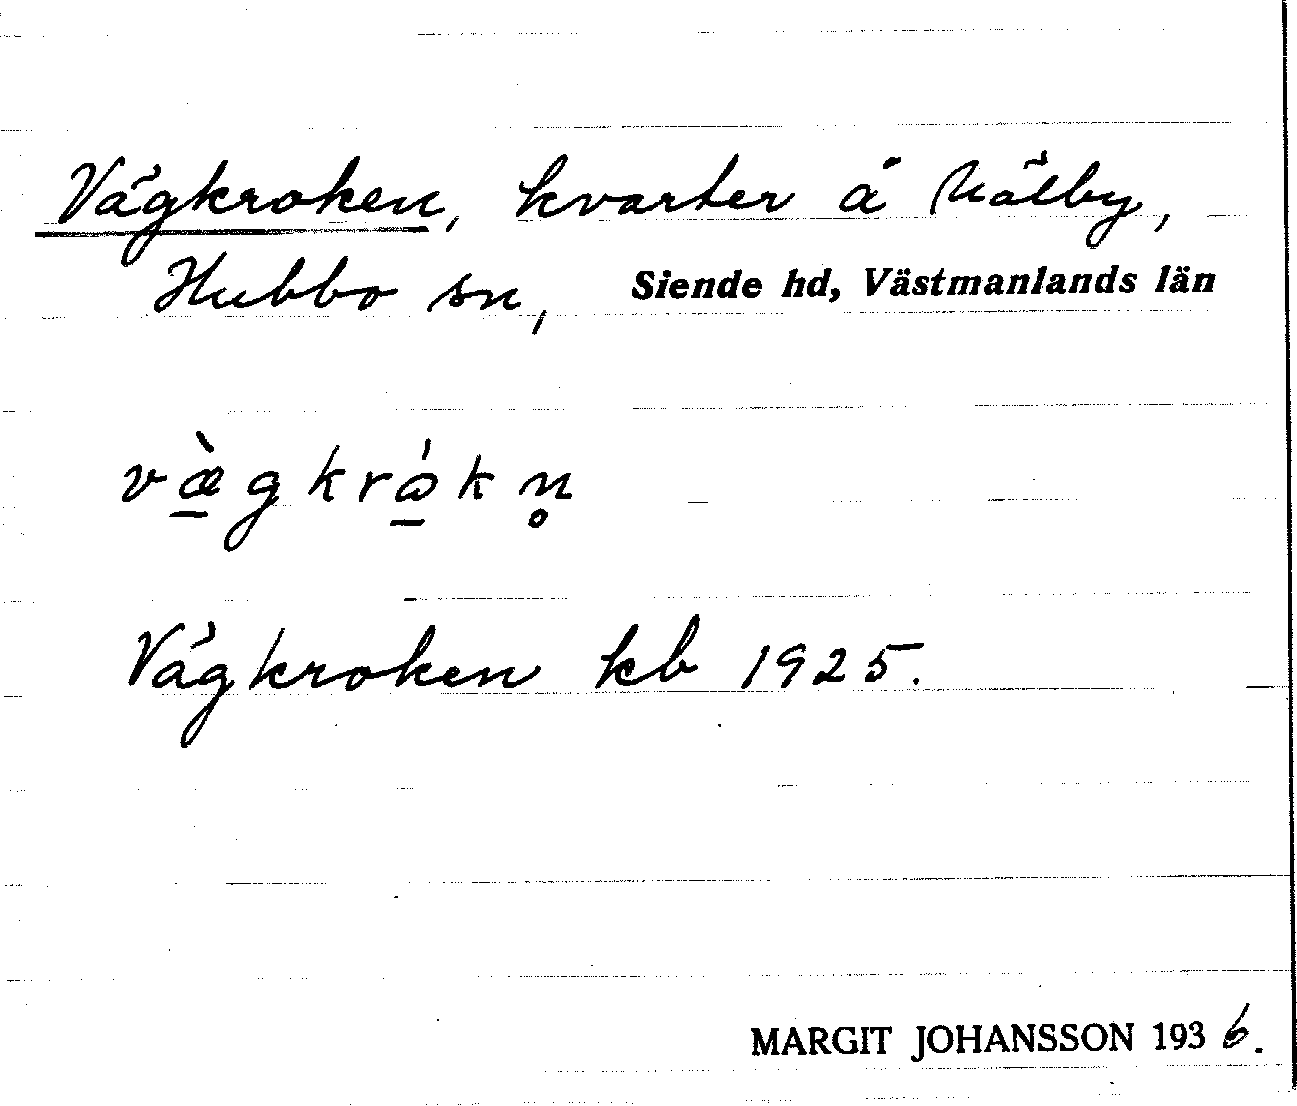 Vägkroken, kvarter å Målby,
Hubbo sn, Siende hd, Västmanlands län
væ̲̀gkrɷ̲́kn̥
Vägkroken kb 1925.
MARGIT JOHANSSON 1936.